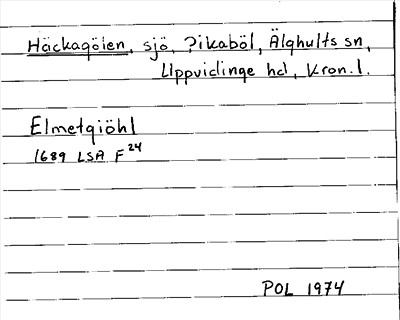 Häckagölen, sjö, Pikaböl, Älghults sn,
Uppvidinge hd, Kron.l.
Elmetgiöhl
1689 LSA F24
POL 1974